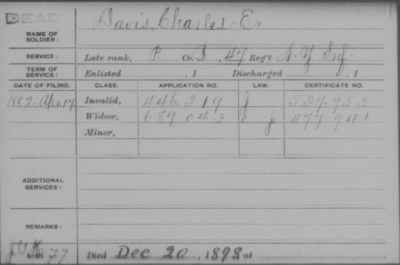 DEAD
NAME OF SOLDIER: Davis, Charles E.
SERVICE: Late rank, P Co. 47 Reg't N.Y. Inf.
TERM OF SERVICE: Enlisted , 1 Discharged , 1
DATE OF FILING. CLASS. APPLICATION NO. LAW. CERTIFICATE NO.
1882 Apr. 17 Invalid, 446.219 J 547.953
Widow, 689.043 J 477.941
Minor,
ADDITIONAL SERVICES:
REMARKS:
77 Died Dec 20, 1898 at